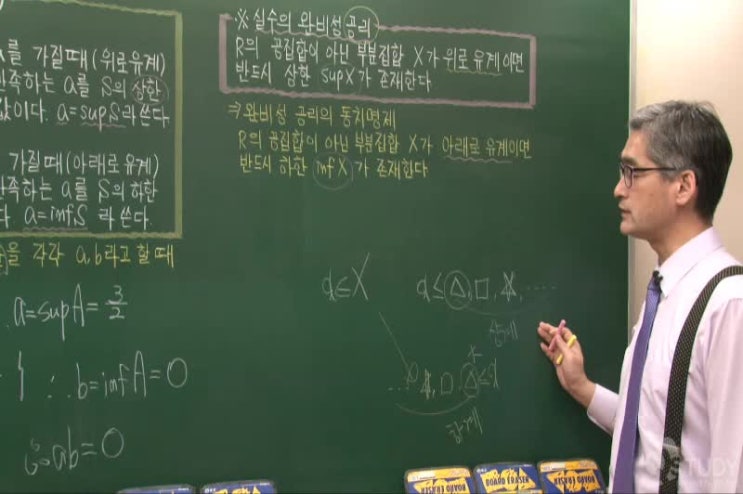 를 가질때(위로유계)
족하는 a를 S의 상한
값이다. a=sup S라 쓴다.
가질때(아래로유계)
족하는 a를 S의 하한
다 a=inf S 라 쓴다.
을 각각 a, b라고 할 때
a=supA=3/2
1 ∴b=infA=0
∴ab=0
※ 실수의 완비성 공리
R의 공집합이 아닌 부분집합 X가 위로 유계이면
반드시 상한 supX가 존재한다
⇒완비성 공리의 동치명제
R의 공집합이 아닌 부분집합 X가 아래로 유계이면
반드시 하한 inf X 가 존재한다
α≤X
α≤△, □, ☆, ....
상계
... ☆, □, △≤α
하계
STUDY
BOARD ERASER
BOARD ERASER
BOARD ERASER